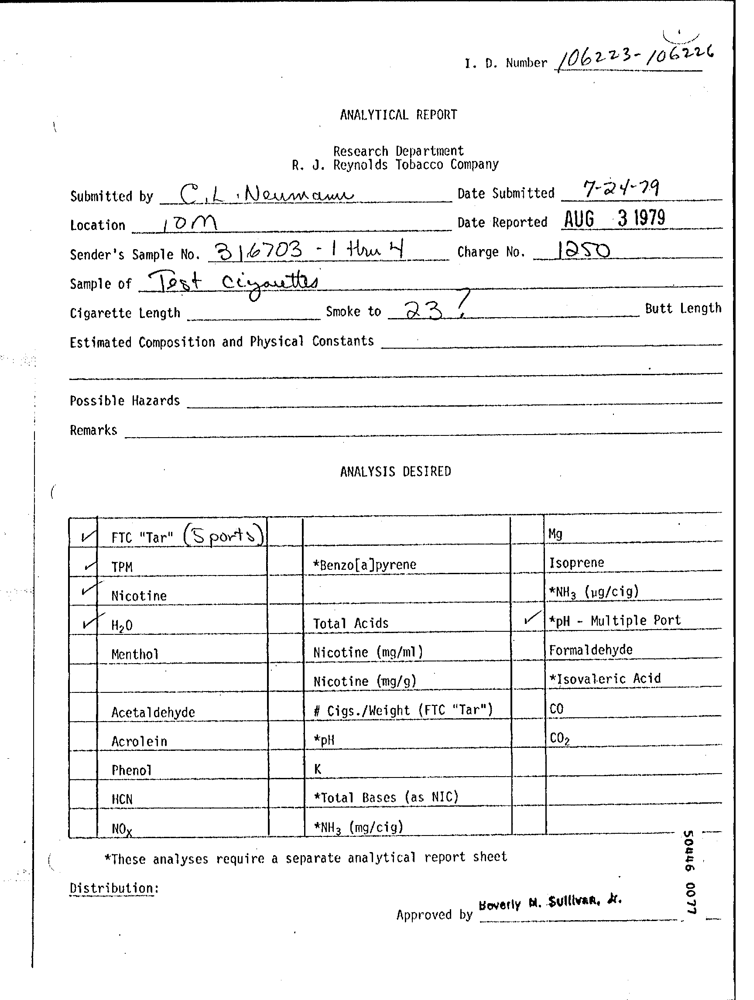 I. D. Number 106223-106226
ANALYTICAL REPORT
Research Department
R. J. Reynolds Tobacco Company
Submitted by C.L. Neumann Date Submitted 7-24-79
Location IOM Date Reported AUG 3 1979
Sender's Sample No. 316703 - 1 thru 4 Charge No. 1250
Sample of Test Cigarettes
Cigarette Length Smoke to 23 ? Butt Length
Estimated Composition and Physical Constants
Possible Hazards
Remarks
ANALYSIS DESIRED
✓ FTC "Tar" (5 ports) Mg
✓ TPM *Benzo[a]pyrene Isoprene
✓ Nicotine *NH₃ (µg/cig)
✓ H₂O Total Acids ✓ *pH - Multiple Port
Menthol Nicotine (mg/ml) Formaldehyde
Nicotine (mg/g) *Isovaleric Acid
Acetaldehyde # Cigs./Weight (FTC "Tar") CO
Acrolein *pH CO₂
Phenol K
HCN *Total Bases (as NIC)
NOₓ *NH₃ (mg/cig)
*These analyses require a separate analytical report sheet
Distribution:
Approved by Beverly M. Sullivan, Jr.
50446 0077